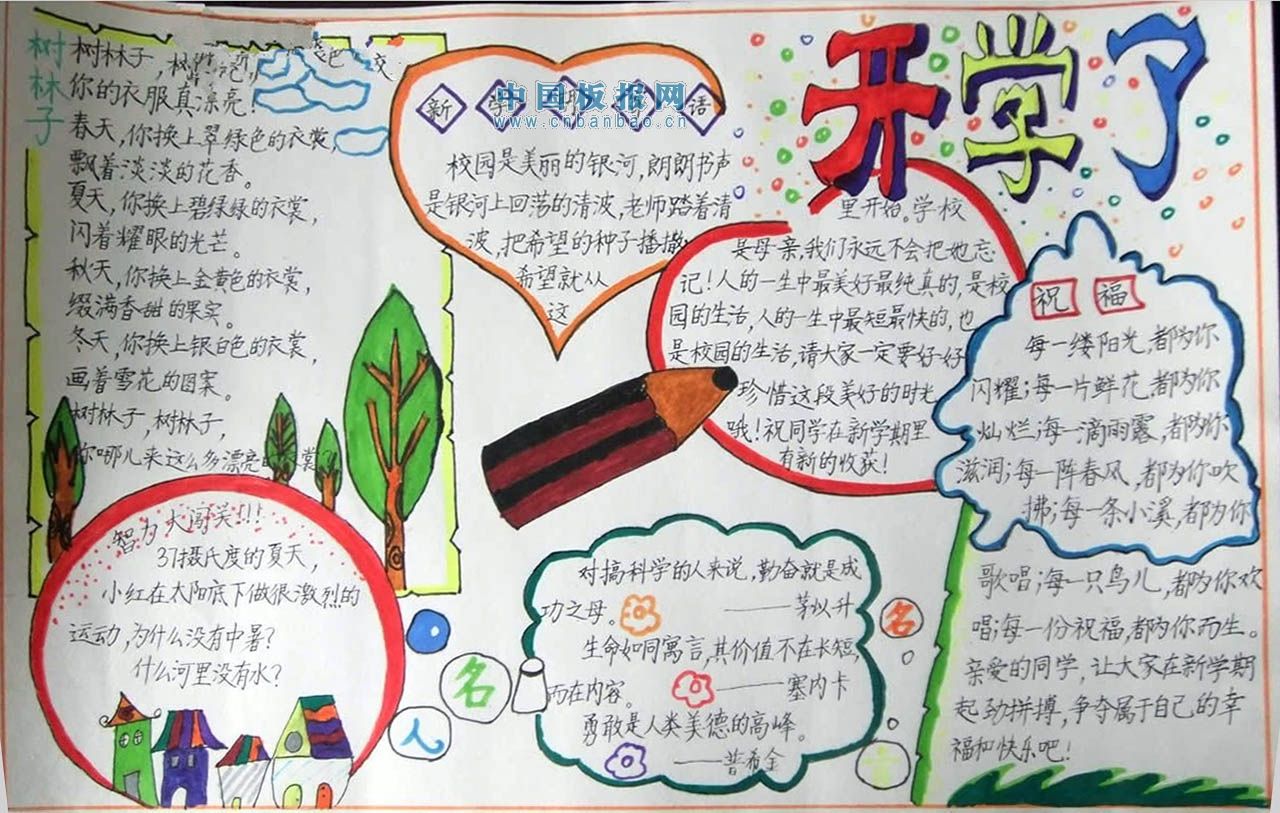 开学了
树林子
树林子,树
你的衣服真漂亮!
春天,你换上翠绿色的衣裳,
飘着淡淡的花香。
夏天,你换上碧绿绿的衣裳,
闪着耀眼的光芒。
秋天,你换上金黄色的衣裳,
缀满香甜的果实。
冬天,你换上银白色的衣裳,
画着雪花的图案。
树林子,树林子,
你哪儿来这么多漂亮的衣裳
新学期寄语
中国板报网
www.cnbanbao.cn
校园是美丽的银河,朗朗书声
是银河上回荡的清波,老师踏着清
波,把希望的种子播撒
希望就从
这
里开始。学校
是母亲,我们永远不会把她忘
记!人的一生中最美好最纯真的,是校
园的生活,人的一生中最短最快的,也
是校园的生活,请大家一定要好好
珍惜这段美好的时光
哦!祝同学在新学期里
有新的收获!
祝福
每一缕阳光,都为你
闪耀;每一片鲜花,都为你
灿烂;每一滴雨露,都为你
滋润;每一阵春风,都为你吹
拂;每一条小溪,都为你
歌唱;每一只鸟儿,都为你欢
唱;每一份祝福,都为你而生。
亲爱的同学,让大家在新学期
起劲拼搏,争夺属于自己的幸
福和快乐吧!
智力大闯关!!!
37摄氏度的夏天,
小红在太阳底下做很激烈的
运动,为什么没有中暑?
什么河里没有水?
名人名言
对搞科学的人来说,勤奋就是成
功之母。 ——茅以升
生命如同寓言,其价值不在长短,
而在内容。 ——塞内卡
勇敢是人类美德的高峰。
——普希金